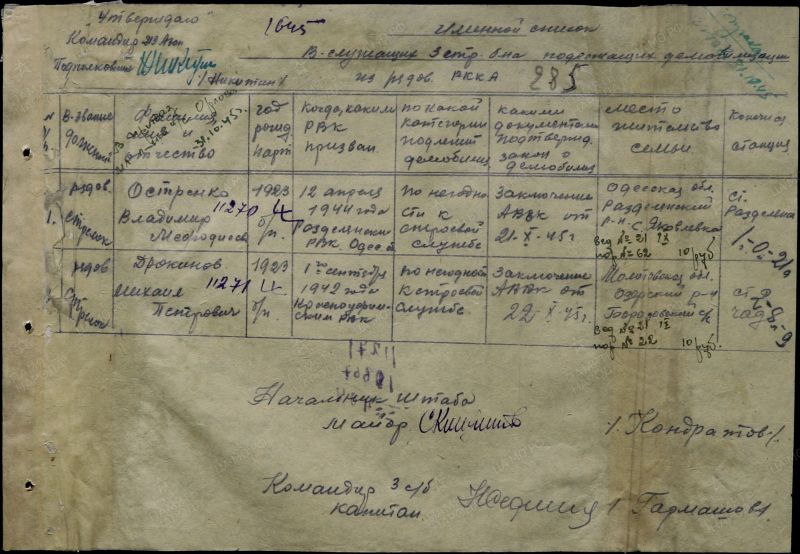 "Утверждаю"
Командир 213 Азсп
Подполковник
/ Никитин /
1645
Именной список
В-служащих 3 стр. б-на подлежащих демобилизации
из рядов РККА 285
30.10.45г.
В-звание должность
Фамилия имя и отчество
год рожд. парт.
Когда, каким РВК призван
по какой категории подлежит демобилиз.
какими документами подтвержд. закон о демобилиз.
место жительство семьи
Конечная станция
1.
рядов. стрелок
Остренко
Владимир 11270
Мефодиевич
1923
б/п.
12 апреля
1944 года
Раздельнянским
РВК. Одесск
по негодно
сти к
строевой
службе
Заключение
АВВК от
21-X-45г
Одесская обл.
Раздельнский
р-н. с. Яковлевка
вед № 21
пор № 62 10 руб
ст.
Раздельная
рядов
стрелок
Дрокинов
Михаил 11271
Петрович
1923
б/п.
1го сентября
1942 года
Красноуфим-
ским РВК
по негодности
к строевой
службе
Заключение
АВВК от
22-X-45г.
Молотовская обл.
р-н
с/с
вед № 21
пор № 22 10 руб.
ст.
чад
11271
Начальник штаба
майор
/ Кондратов /.
Командир 3 с/б
капитан
/ Гармашов /